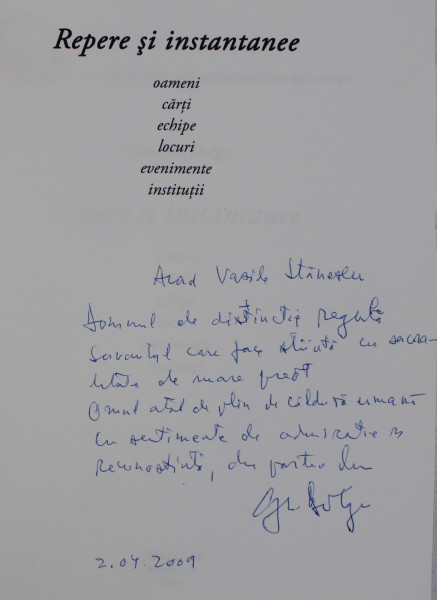 Repere și instantanee
oameni
cărți
echipe
locuri
evenimente
instituții
Acad Vasile Stănescu
Domnul de distincție regală
Savantul care face știință cu sacra-
litate de mare preot
Omul atât de plin de căldură umană
cu sentimente de admirație și
recunoștință, din partea lui
2.04.2009